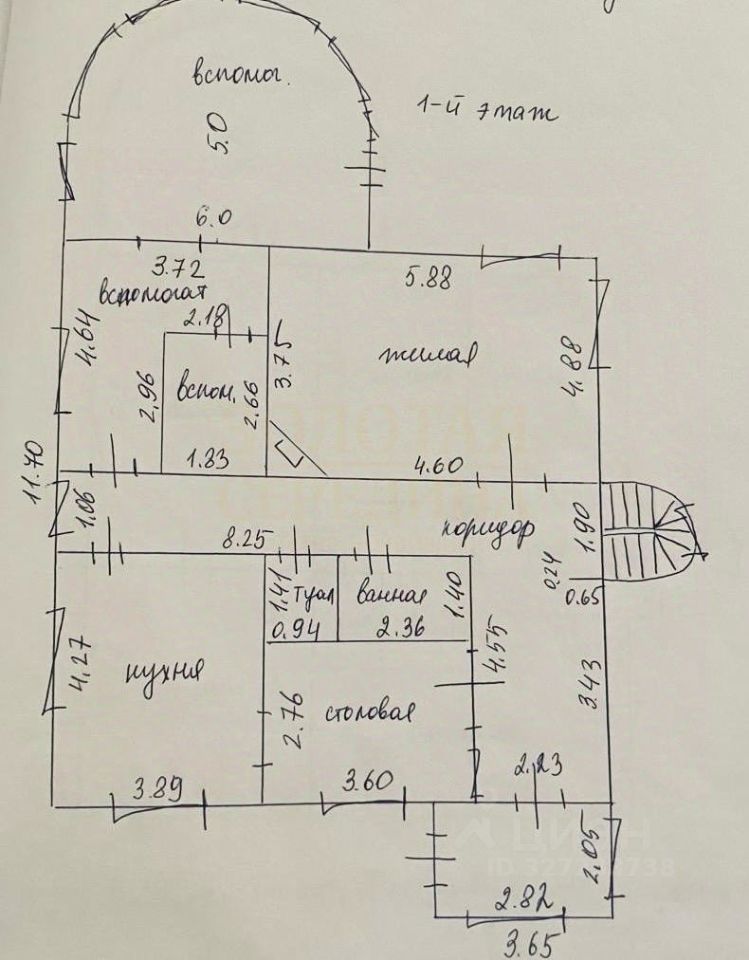 вспомог.
1-й этаж
5.0
6.0
3.72
вспомогат
5.88
4.64
2.18
3.75
жилая
4.88
2.96
вспом.
2.66
1.83
4.60
11.70
1.06
8.25
коридор
1.90
0.24
0.65
1.41
туал
ванная
1.40
0.94
2.36
4.55
4.27
кухня
2.76
столовая
3.43
3.89
3.60
2.23
2.05
2.82
3.65
ЦИАН